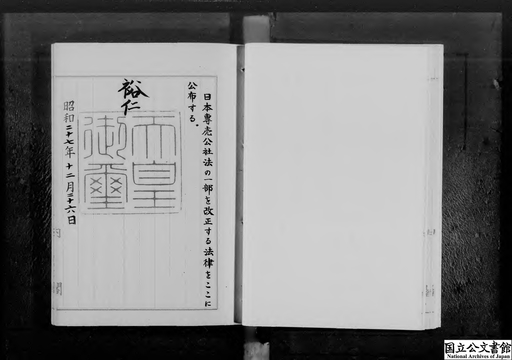 日本専売公社法の一部を改正する法律をここに
公布する。
裕仁
天皇
御璽
昭和二十七年十二月二十六日
国立公文書館
National Archives of Japan